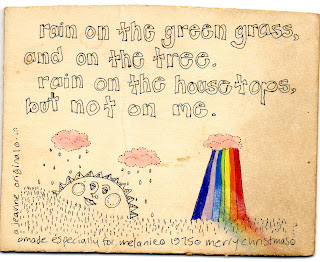 rain on the green grass,
and on the tree.
rain on the housetops,
but not on me.
a jeanne original o...
made especially for melanie o 1975 o merry christmas o